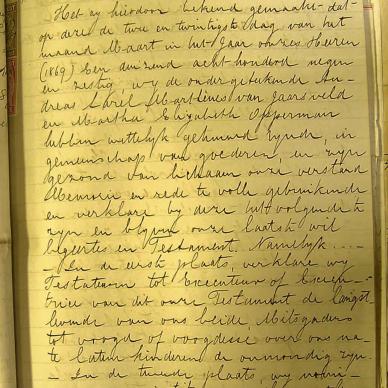 Het zy hierdoor bekend gemaakt dat
op deze de twee en twintigste dag van het
maand Maart in het Jaar onzes Heeren
(1869) Een duizend acht honderd negen
en zestig, wy de ondergetekende An-
dreas Karel Martinus van Jaarsveld
en Martha Elizabeth Opperman
hebben wettelyk gehuwd zynde, in
gemeenschap van goederen, en zyn
gezond van lichaam onze verstand
Memorie en rede te volle gebruikende
en verklare by deze het volgende te
zyn en blyven onze laatste wil
begeertes en Testament. Namelyk
- In de eerste plaats, verklare wy
Testateuren tot Executeur of Execu-
trice van dit onze Testament de langst
levende van ons beide, Mitsgaders
tot voogd of voogdesse over ons na-
te laten kinderen de onmondig zyn.
- In de tweede plaats, wy